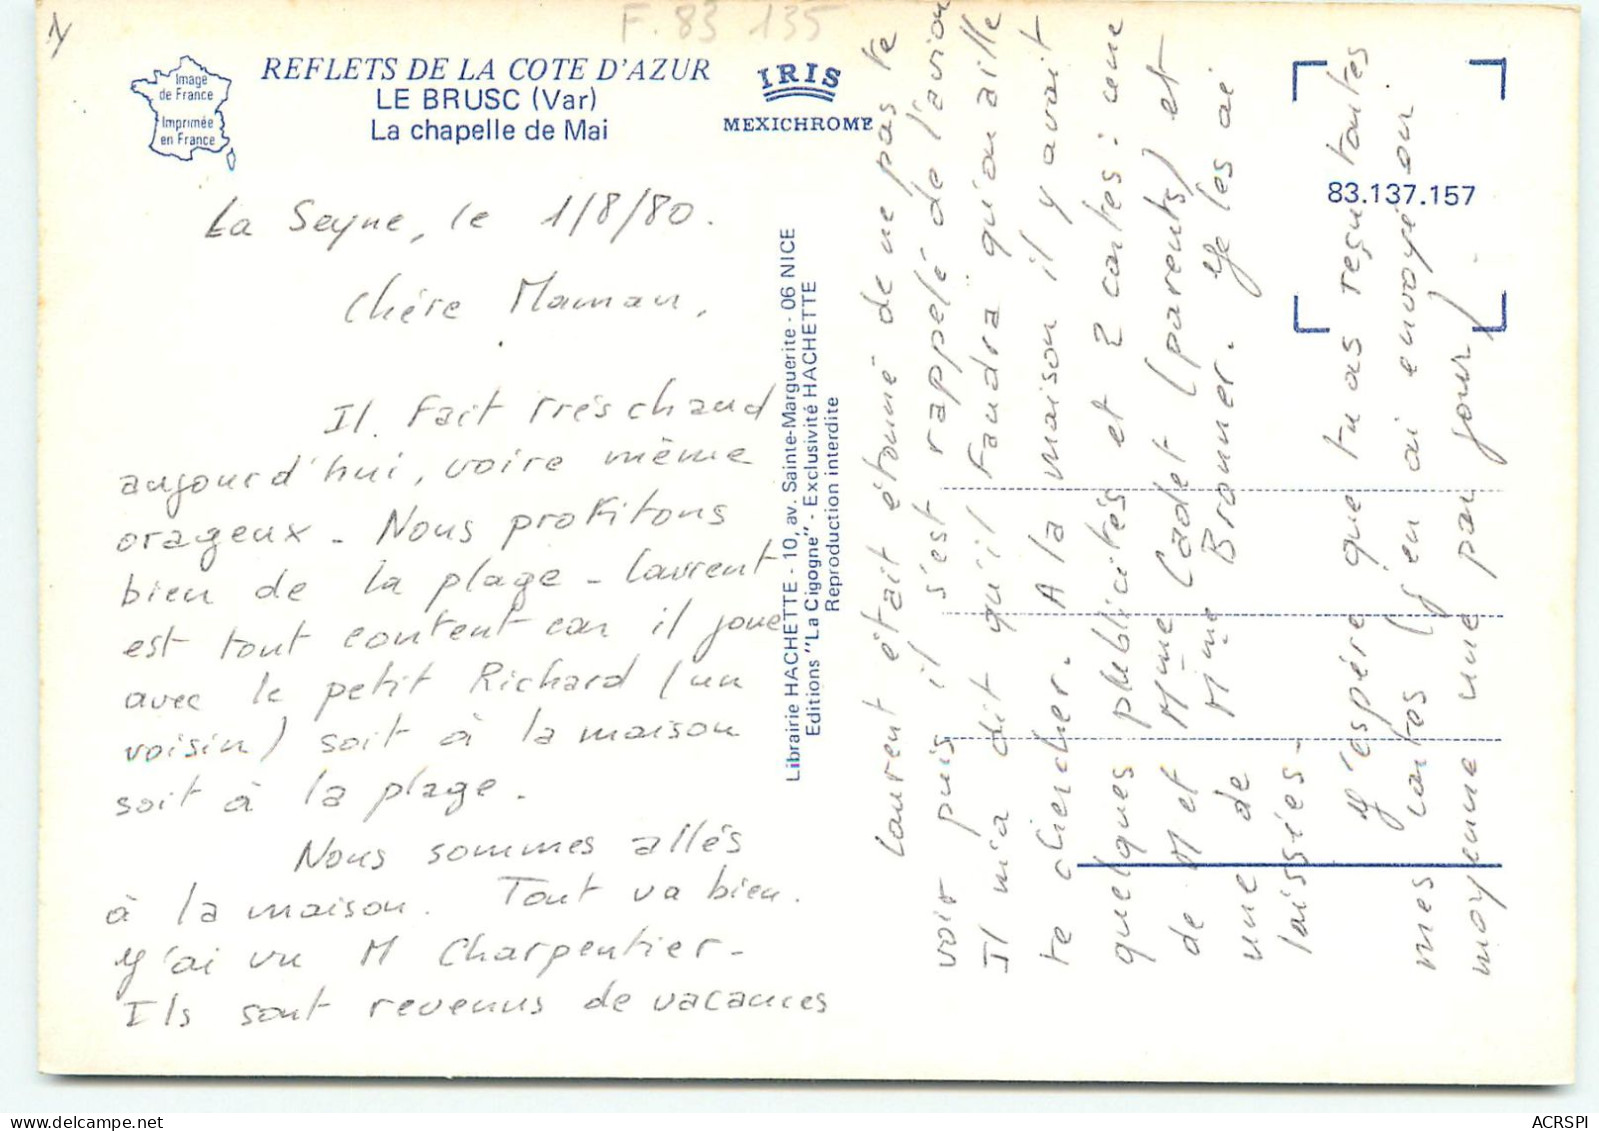 F.83 135
Image
de France
Imprimée
en France
REFLETS DE LA COTE D'AZUR
LE BRUSC (Var)
La chapelle de Mai
IRIS
MEXICHROME
83.137.157
Librairie HACHETTE - 10, av. Sainte-Marguerite - 06 NICE
Editions "La Cigogne" - Exclusivité HACHETTE
Reproduction interdite
La Seyne, le 1/8/80.
Chère Maman,
Il fait très chaud
aujourd'hui, voire même
orageux - Nous profitons
bien de la plage - Laurent
est tout content car il joue
avec le petit Richard (un
voisin) soit à la maison
soit à la plage.
Nous sommes allés
à la maison. Tout va bien.
J'ai vu M Charpentier -
Ils sont revenus de vacances
Laurent était étonné de ne pas te
voir puis il s'est rappelé de l'avion
Il m'a dit qu'il faudra qu'on aille
te chercher. A la maison il y avait
quelques publicités et 2 cartes : une
de M et Mme Cadet (parents) et
une de Mme Bronner. Je les ai
laissées -
J'espère que tu as reçu toutes
mes cartes (j'en ai envoyé en
moyenne une par jour)
ACRSPI